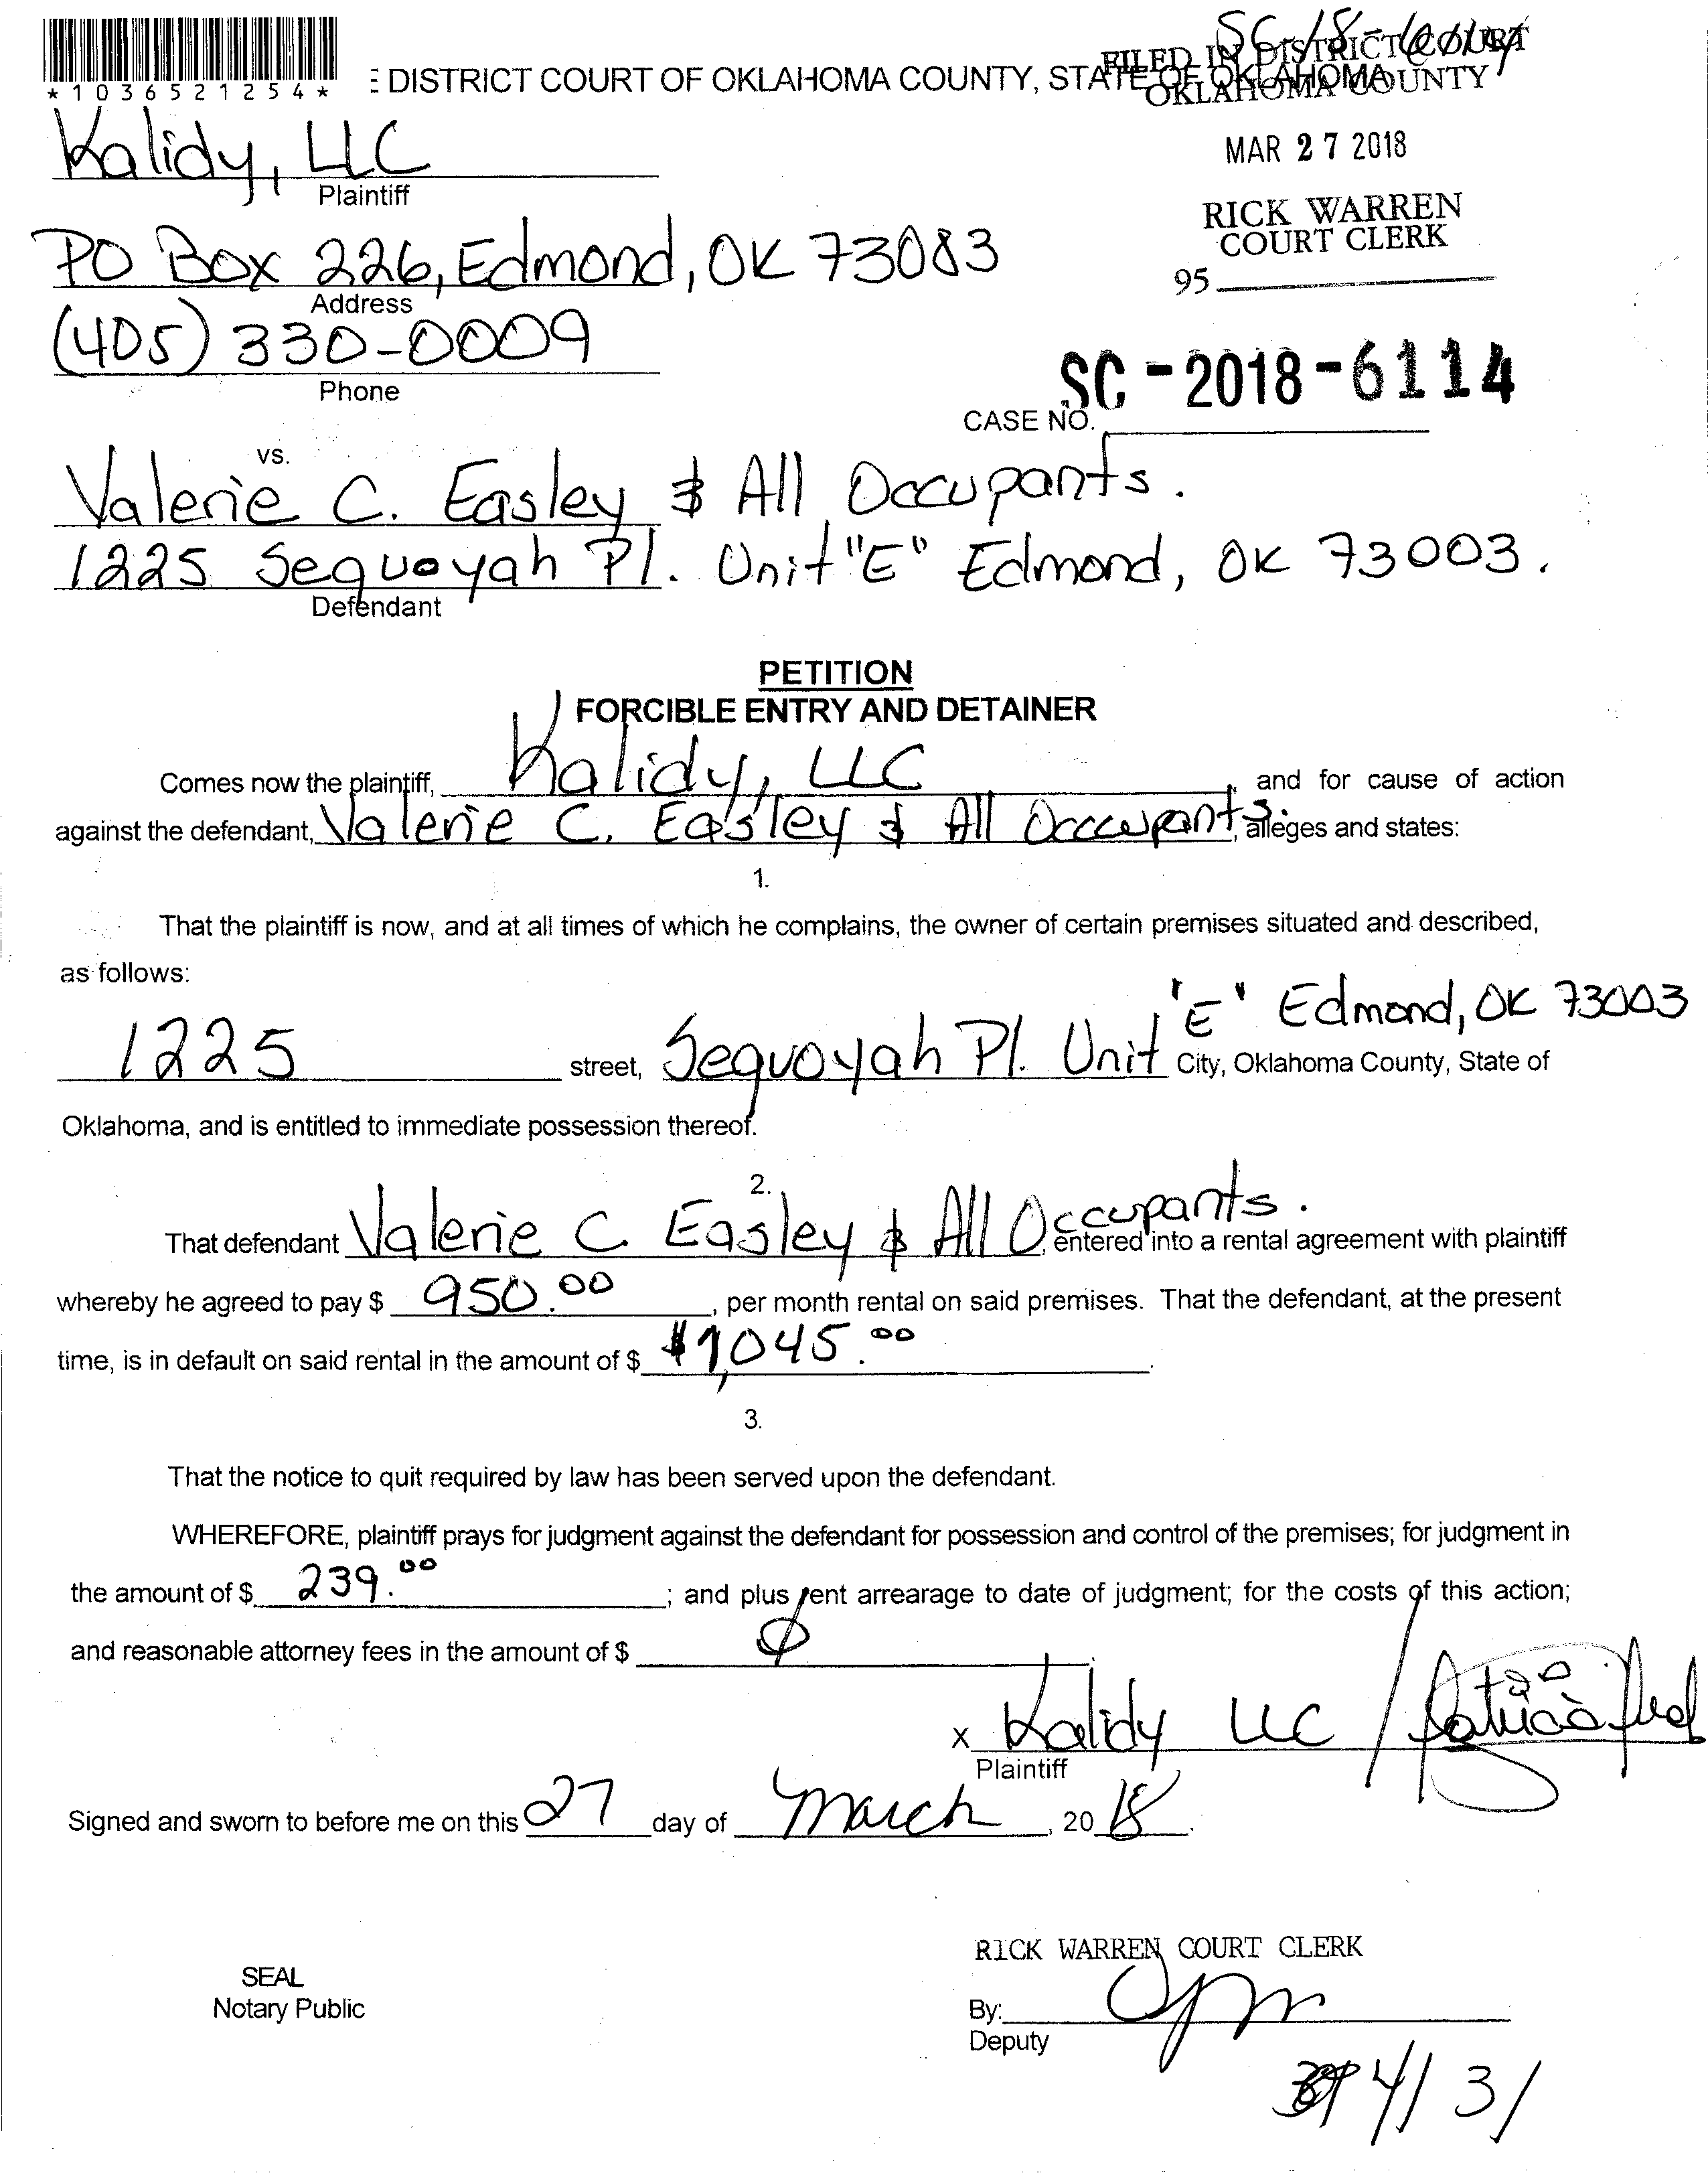 SC-18-6114
FILED IN DISTRICT COURT
OKLAHOMA COUNTY
* 1 0 3 6 5 2 1 2 5 4 *
E DISTRICT COURT OF OKLAHOMA COUNTY, STATE OF OKLAHOMA
MAR 2 7 2018
Kalidy, LLC
Plaintiff
RICK WARREN
COURT CLERK
PO Box 226, Edmond, OK 73083
95
Address
(405) 330-0009
Phone
SC - 2018 - 6114
CASE NO.
vs.
Valerie C. Easley & All Occupants.
1225 Sequoyah Pl. Unit "E" Edmond, OK 73003.
Defendant
PETITION
FORCIBLE ENTRY AND DETAINER
Comes now the plaintiff, Kalidy, LLC, and for cause of action
against the defendant, Valerie C. Easley & All Occcupants., alleges and states:
1.
That the plaintiff is now, and at all times of which he complains, the owner of certain premises situated and described,
as follows:
1225 street, Sequoyah Pl. Unit 'E' Edmond, OK 73003 City, Oklahoma County, State of
Oklahoma, and is entitled to immediate possession thereof.
2.
That defendant Valerie C. Easley & All Occupants., entered into a rental agreement with plaintiff
whereby he agreed to pay $ 950.00, per month rental on said premises. That the defendant, at the present
time, is in default on said rental in the amount of $ $1,045.00.
3.
That the notice to quit required by law has been served upon the defendant.
WHEREFORE, plaintiff prays for judgment against the defendant for possession and control of the premises; for judgment in
the amount of $ 239.00; and plus rent arrearage to date of judgment; for the costs of this action;
and reasonable attorney fees in the amount of $ Ø.
x Kalidy LLC /
Plaintiff
Signed and sworn to before me on this 27 day of March, 20 18.
RICK WARREN COURT CLERK
SEAL
Notary Public
By:
Deputy
4/3/